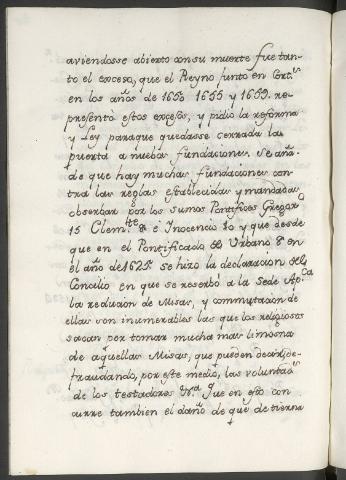 aviendosse abierto con su muerte fue tan-
to el exceso, que el Reyno junto en Cort.s
en los años de 1653 1655 y 1659. re-
presentò estos excesos, y pidio la reforma
y Ley paraque quedasse cerrada la
puerta a nuebas fundaciones. Se aña-
de que hay muchas fundaciones con-
tra las reglas establecidas y mandadas
observar por los sumos Pontifices Gregor.o
15 Clem.te 8 e Inocencio 10 y que desde
que en el Pontificado de Urbano 8 en
el año de 1625 se hizo la declaracion del
Concilio en que se reserbó a la Sede Ap.ca
la reducion de Misas, y commutacion de
ellas son inumerables las que los religiosos
sacan per tomar mucha mas limosna
de aquellas Misas, que pueden decir, de-
fraudando, por este medio, las voluntad.s
de los testadores q.e en esto con
curre tambien el daño de que de tierna